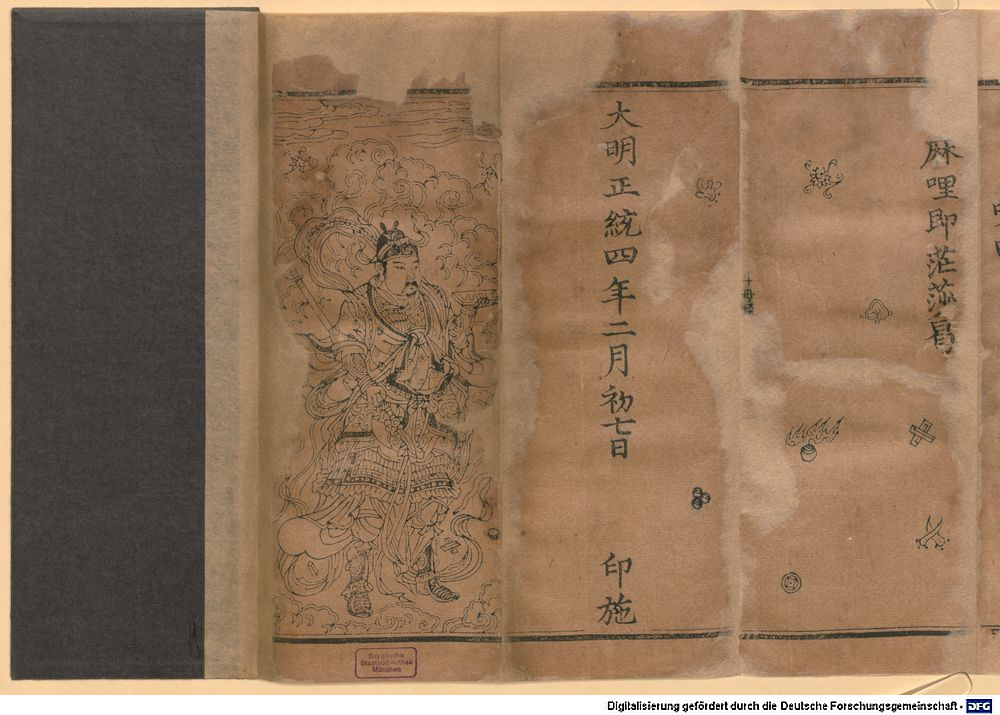 麻哩即茫莎曷
大明正統四年二月初七日 印施
Bayerische
Staatsbibliothek
München
Digitalisierung gefördert durch die Deutsche Forschungsgemeinschaft - DFG